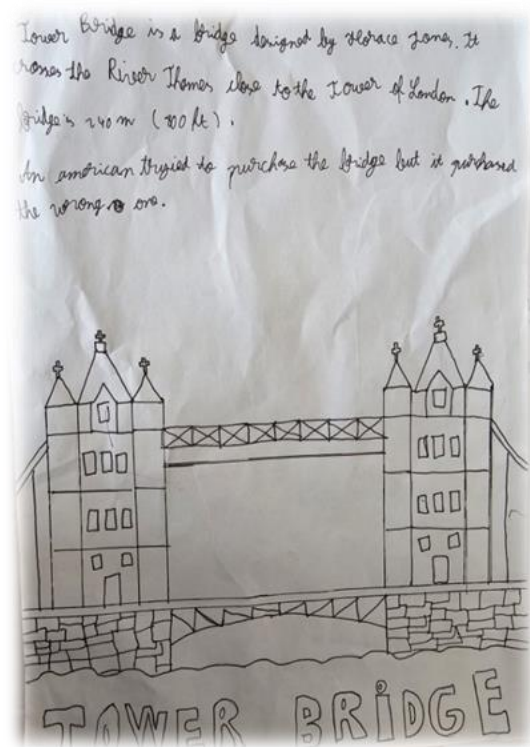 Tower Bridge is a bridge designed by Horace Jones. It
crosses the River Thames close to the Tower of London. The
bridge is 240 m (800 ft).
An american tryied to purchase the bridge but it purchased
the wrong one.
TOWER BRIDGE